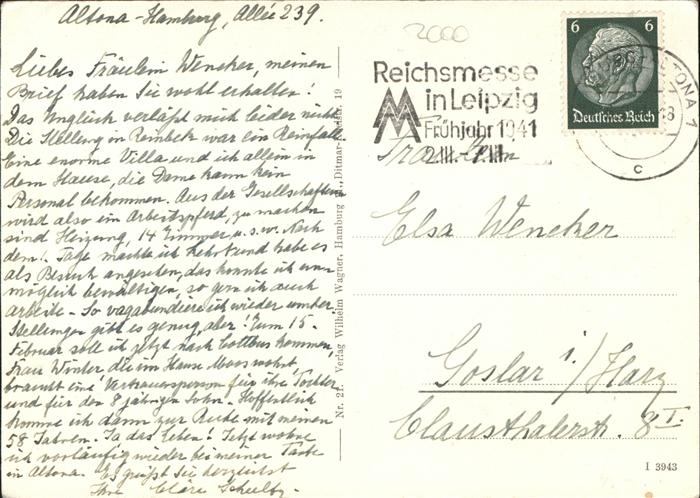 Altona-Hamburg, Allée 239.
Liebes Fräulein Wencker, meinen
Brief haben Sie wohl erhalten!
Das Unglück verläßt mich leider nicht.
Die Stellung in Reinbek war ein Reinfall.
Eine enorme Villa und ich allein in
dem Hause, die Dame kann kein
Personal bekommen. Aus der Gesellschafterin
wird also ein Arbeitspferd, zu machen
sind Heizung, 14 Zimmer u.s.w. Nach
dem 1. Tage machte ich kehrt und habe es
als Besuch angesehen, das konnte ich
möglich bewältigen, so gern ich auch
arbeite. So vagabundiere ich wieder umher.
Stellungen gibt es genug, aber! Zum 15.
Februar soll ich jetzt nach Cottbus kommen,
Frau Winter die im Hause Moos wohnt
braucht eine Vertrauensperson für ihre Tochter
und für den 8 jährigen Sohn. Hoffentlich
komme ich dann zur Ruhe mit meinen
58 Jahren. Ja das Leben! Jetzt wohne
ich vorläufig wieder bei meiner Tante
in Altona. Es grüßt Sie herzlichst
Ihre Cläre
Nr. 21. Verlag Wilhelm Wagner, Hamburg 19
2000
Reichsmesse
in Leipzig
Frühjahr 1941
2.III.-7.III.
6 6
Deutsches Reich
ALTONA 1
c
Fräulein
Elsa Wencker
Goslar i/Harz
Clausthalerstr. 8 I.
I 3943